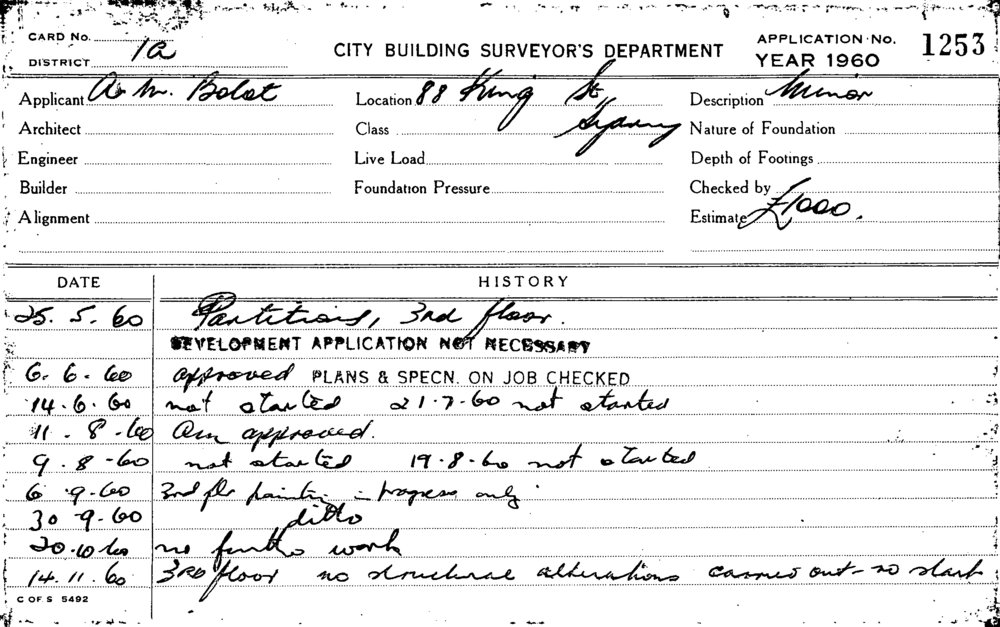 CARD No.
DISTRICT 1a
CITY BUILDING SURVEYOR'S DEPARTMENT
APPLICATION No. 1253
YEAR 1960
Applicant A. M. Bolot
Location 88 King St,
Sydney
Description Minor
Architect
Class
Nature of Foundation
Engineer
Live Load
Depth of Footings
Builder
Foundation Pressure
Checked by
Alignment
Estimate £1000.
DATE HISTORY
25. 5. 60 Partitions, 3rd floor.
DEVELOPMENT APPLICATION NOT NECESSARY
6. 6. 60 approved PLANS & SPECN. ON JOB CHECKED
14.6.60 not started 21-7-60 not started
11-8-60 approved.
9.8-60 not started 19.8.60 not started
6 9-60 3rd flr painting in progress only
30 9-60 ditto
20.10.60 no further work
14.11.60 3RD floor no structural alterations carried out - no start
C OF S 5492